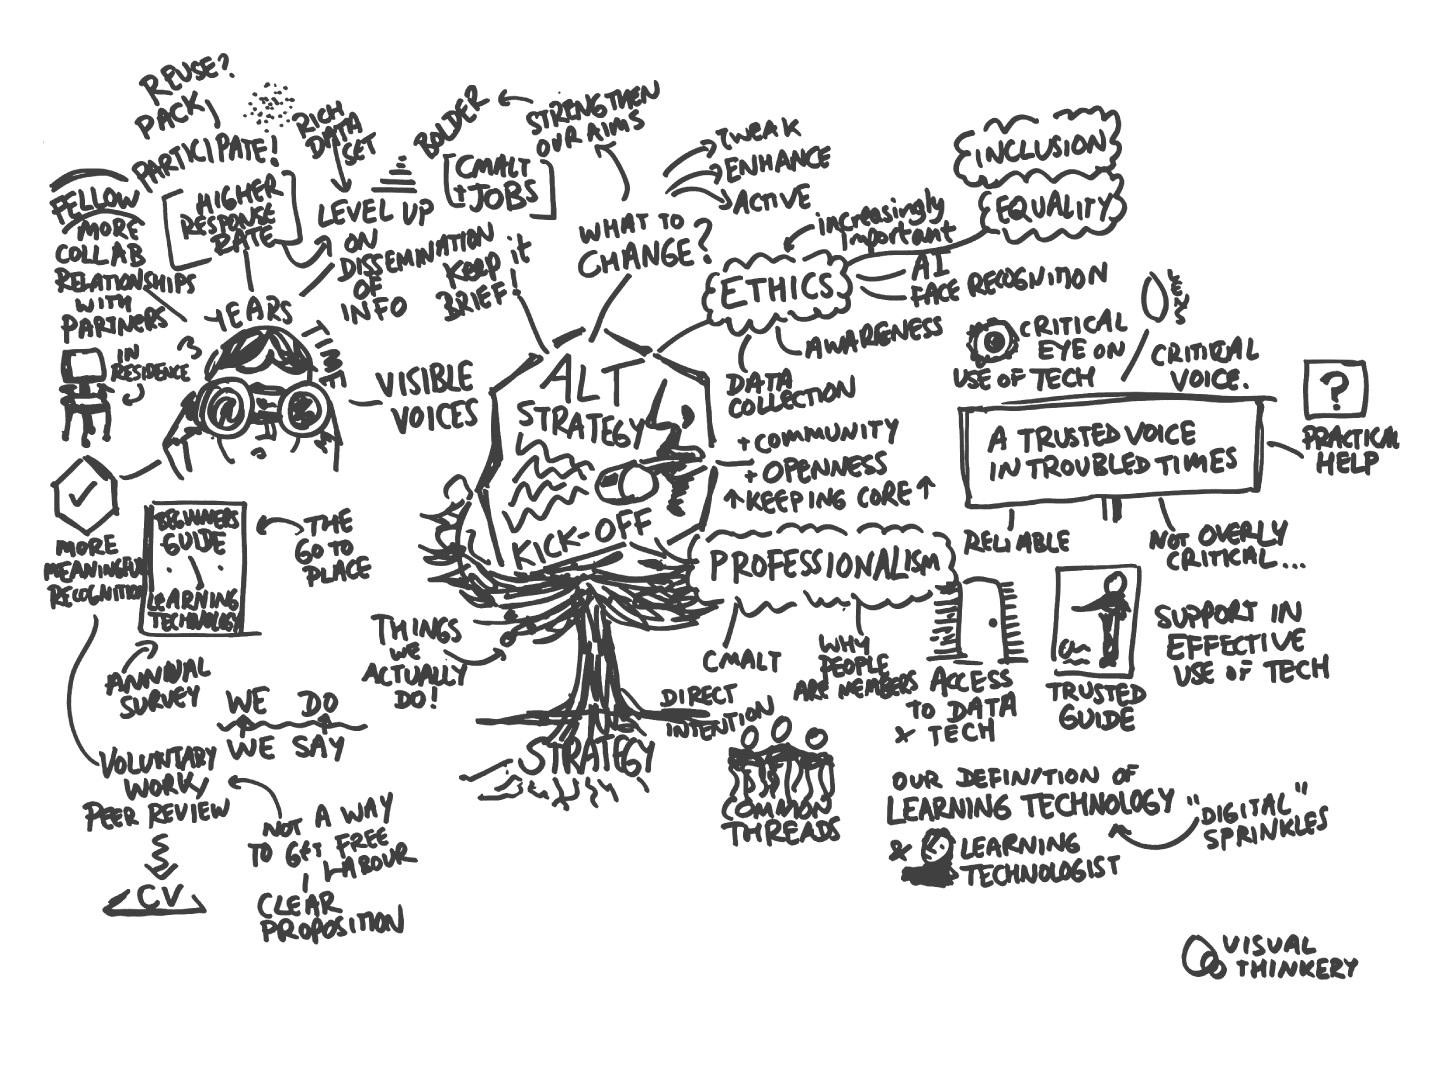 REUSE?
PACK
PARTICIPATE!
RICH
DATA
SET
[HIGHER
RESPONSE
RATE]
LEVEL UP
ON
DISSEMINATION
OF
INFO
BOLDER
STRENGTHEN
OUR AIMS
[CMALT
+ JOBS]
KEEP it
BRIEF!
WHAT TO
CHANGE?
TWEAK
ENHANCE
ACTIVE
FELLOW
MORE
COLLAB
RELATIONSHIPS
WITH
PARTNERS
IN
RESIDENCE
3
YEARS
TIME
VISIBLE
VOICES
MORE
MEANINGFUL
RECOGNITION
BEGINNERS
GUIDE
LEARNING
TECHNOLOGY
THE
GO TO
PLACE
ANNUAL
SURVEY
WE DO
WE SAY
VOLUNTARY
WORK
PEER REVIEW
CV
NOT A WAY
TO GET FREE
LABOUR
CLEAR
PROPOSITION
ALT
STRATEGY
KICK-OFF
THINGS
WE
ACTUALLY
DO!
STRATEGY
ETHICS
increasingly
important
INCLUSION
EQUALITY
AI
FACE RECOGNITION
AWARENESS
DATA
COLLECTION
+ COMMUNITY
+ OPENNESS
↑ KEEPING CORE ↑
PROFESSIONALISM
CMALT
WHY
PEOPLE
ARE MEMBERS
DIRECT
INTENTION
COMMON
THREADS
CRITICAL
EYE ON
USE OF TECH
LENS
CRITICAL
VOICE.
A TRUSTED VOICE
IN TROUBLED TIMES
?
PRACTICAL
HELP
RELIABLE
NOT OVERLY
CRITICAL...
ACCESS
TO DATA
& TECH
TRUSTED
GUIDE
SUPPORT IN
EFFECTIVE
USE OF TECH
OUR DEFINITION OF
LEARNING TECHNOLOGY
& LEARNING
TECHNOLOGIST
"DIGITAL"
SPRINKLES
VISUAL
THINKERY